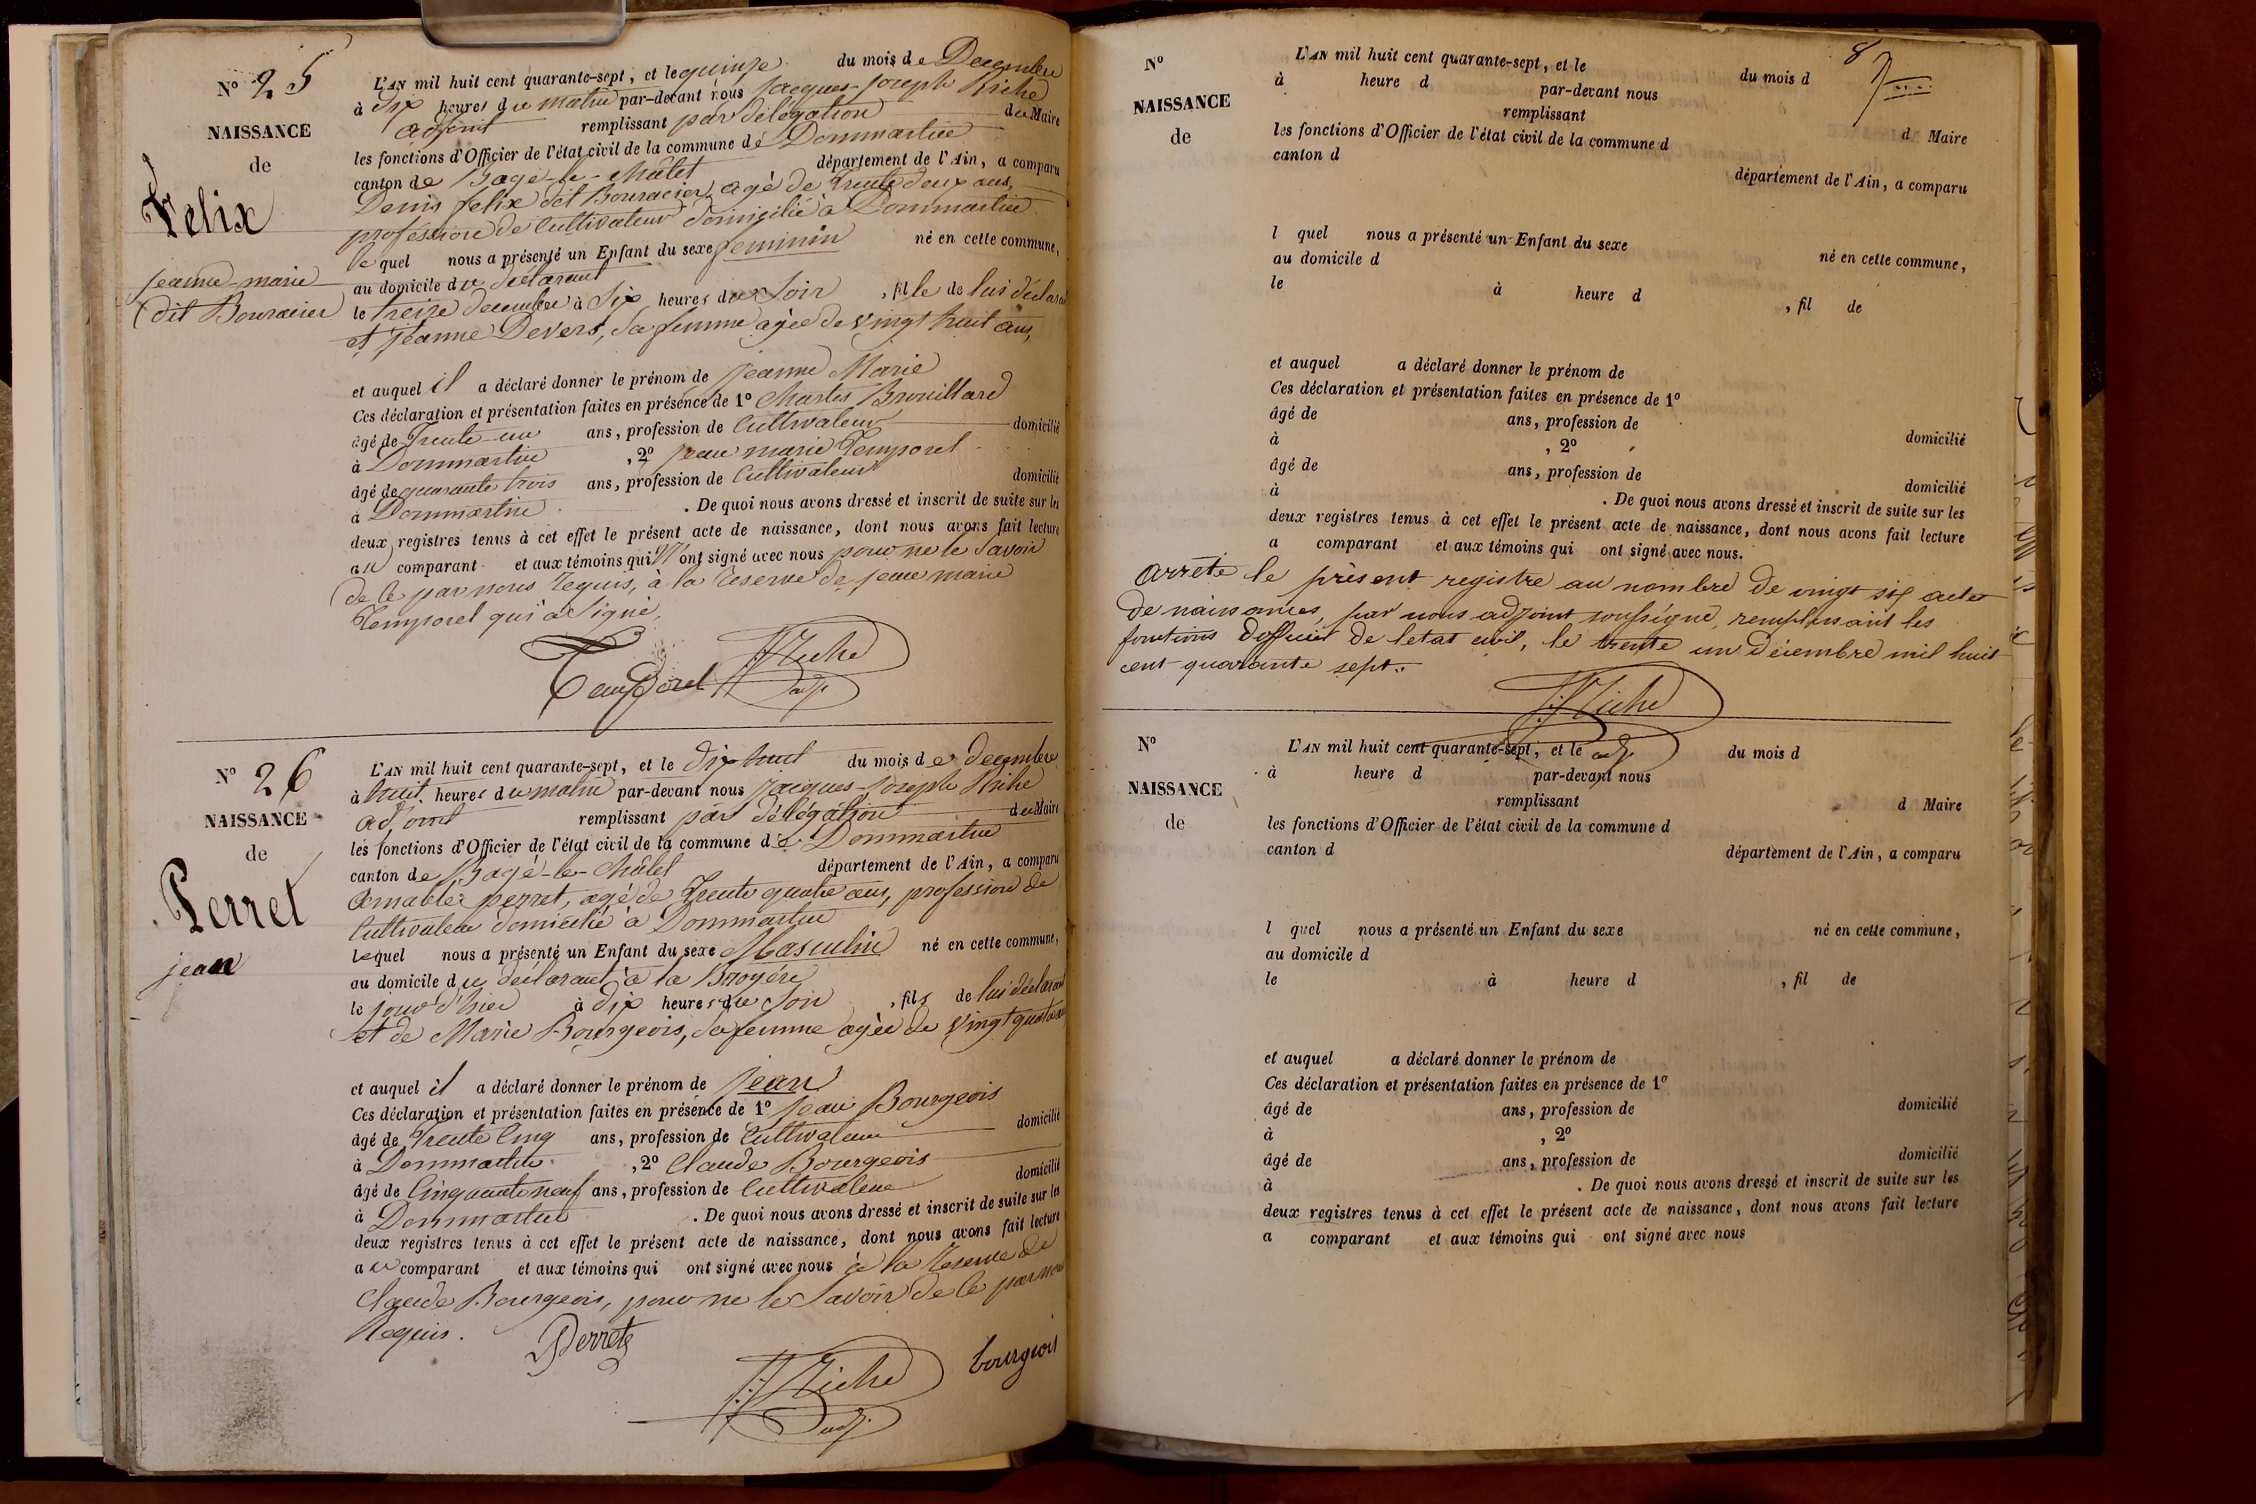 N° 25
NAISSANCE
de
Felix
jeanne-marie
(dit Bouracier
L'AN mil huit cent quarante-sept, et le quinze du mois de Decembre
à dix heures du matin par-devant nous jacques-joseph Riche
adjoint remplissant par délégation du Maire
les fonctions d'Officier de l'état civil de la commune de Dommartin
canton de Bagé-le-Châtel département de l'Ain, a comparu
Denis felix dit Bouracier, agé de trente deux ans,
profession de Cultivateur domicilié à Dommartin
le quel nous a présenté un Enfant du sexe feminin né en cette commune,
au domicile du déclarant
le treize decembre à Six heures du Soir , fille de lui déclarant
et jeanne Devert, Sa femme agée de vingt huit ans,
et auquel il a déclaré donner le prénom de jeanne Marie
Ces déclaration et présentation faites en présence de 1° Charles Brouillard
âgé de Trente-un ans, profession de Cultivateur domicilié
à Dommartin , 2° jean marie Temporel
âgé de quarante trois ans, profession de Cultivateur domicilié
à Dommartin . De quoi nous avons dressé et inscrit de suite sur les
deux registres tenus à cet effet le présent acte de naissance, dont nous avons fait lecture
au comparant et aux témoins qui n'ont signé avec nous pour ne le Savoir
de ce par nous Requis, à la Reserve de jean marie
Temporel qui a Signé,
Temporel JJ Riche
adj.
N° 26
NAISSANCE
de
Perret
jean
L'AN mil huit cent quarante-sept, et le dix huit du mois de decembre
à huit heures du matin par-devant nous jacques-joseph Riche
adjoint remplissant par délégation du Maire
les fonctions d'Officier de l'état civil de la commune de Dommartin
canton de Bagé-le-Châtel département de l'Ain, a comparu
Amable perret, agé de Trente quatre ans, profession de
Cultivateur domicilié à Dommartin
lequel nous a présenté un Enfant du sexe Masculin né en cette commune,
au domicile du déclarant à la
le jour d'hier à dix heures du Soir , fils de lui déclarant
et de Marie Bourgeois, Sa femme agée de vingt quatre ans
et auquel il a déclaré donner le prénom de jean
Ces déclaration et présentation faites en présence de 1° jean Bourgeois
âgé de Trente Cinq ans, profession de Cultivateur domicilié
à Dommartin , 2° Claude Bourgeois
âgé de Cinquante neuf ans, profession de Cultivateur domicilié
à Dommartin . De quoi nous avons dressé et inscrit de suite sur les
deux registres tenus à cet effet le présent acte de naissance, dont nous avons fait lecture
au comparant et aux témoins qui ont signé avec nous à la Reserve de
Claude Bourgeois, pour ne le Savoir de ce par nous
Requis.
Perret
bourgeois
JJ Riche
adj.
8
N°
NAISSANCE
de
L'AN mil huit cent quarante-sept, et le du mois d
à heure d par-devant nous
remplissant d Maire
les fonctions d'Officier de l'état civil de la commune d
canton d département de l'Ain, a comparu
l quel nous a présenté un Enfant du sexe né en cette commune,
au domicile d
le à heure d , fil de
et auquel a déclaré donner le prénom de
Ces déclaration et présentation faites en présence de 1°
âgé de ans, profession de domicilié
à , 2°
âgé de ans, profession de domicilié
à . De quoi nous avons dressé et inscrit de suite sur les
deux registres tenus à cet effet le présent acte de naissance, dont nous avons fait lecture
a comparant et aux témoins qui ont signé avec nous.
Arreté le présent registre au nombre de vingt six actes
de naissances, par nous adjoint soussigné, remplissant les
fonctions d'officier de letat civil, le trente un décembre mil huit
cent quarante sept.
JJ Riche
adj
N°
NAISSANCE
de
L'AN mil huit cent quarante-sept, et le du mois d
à heure d par-devant nous
remplissant d Maire
les fonctions d'Officier de l'état civil de la commune d
canton d département de l'Ain, a comparu
l quel nous a présenté un Enfant du sexe né en cette commune,
au domicile d
le à heure d , fil de
et auquel a déclaré donner le prénom de
Ces déclaration et présentation faites en présence de 1°
âgé de ans, profession de domicilié
à , 2°
âgé de ans, profession de domicilié
à . De quoi nous avons dressé et inscrit de suite sur les
deux registres tenus à cet effet le présent acte de naissance, dont nous avons fait lecture
a comparant et aux témoins qui ont signé avec nous